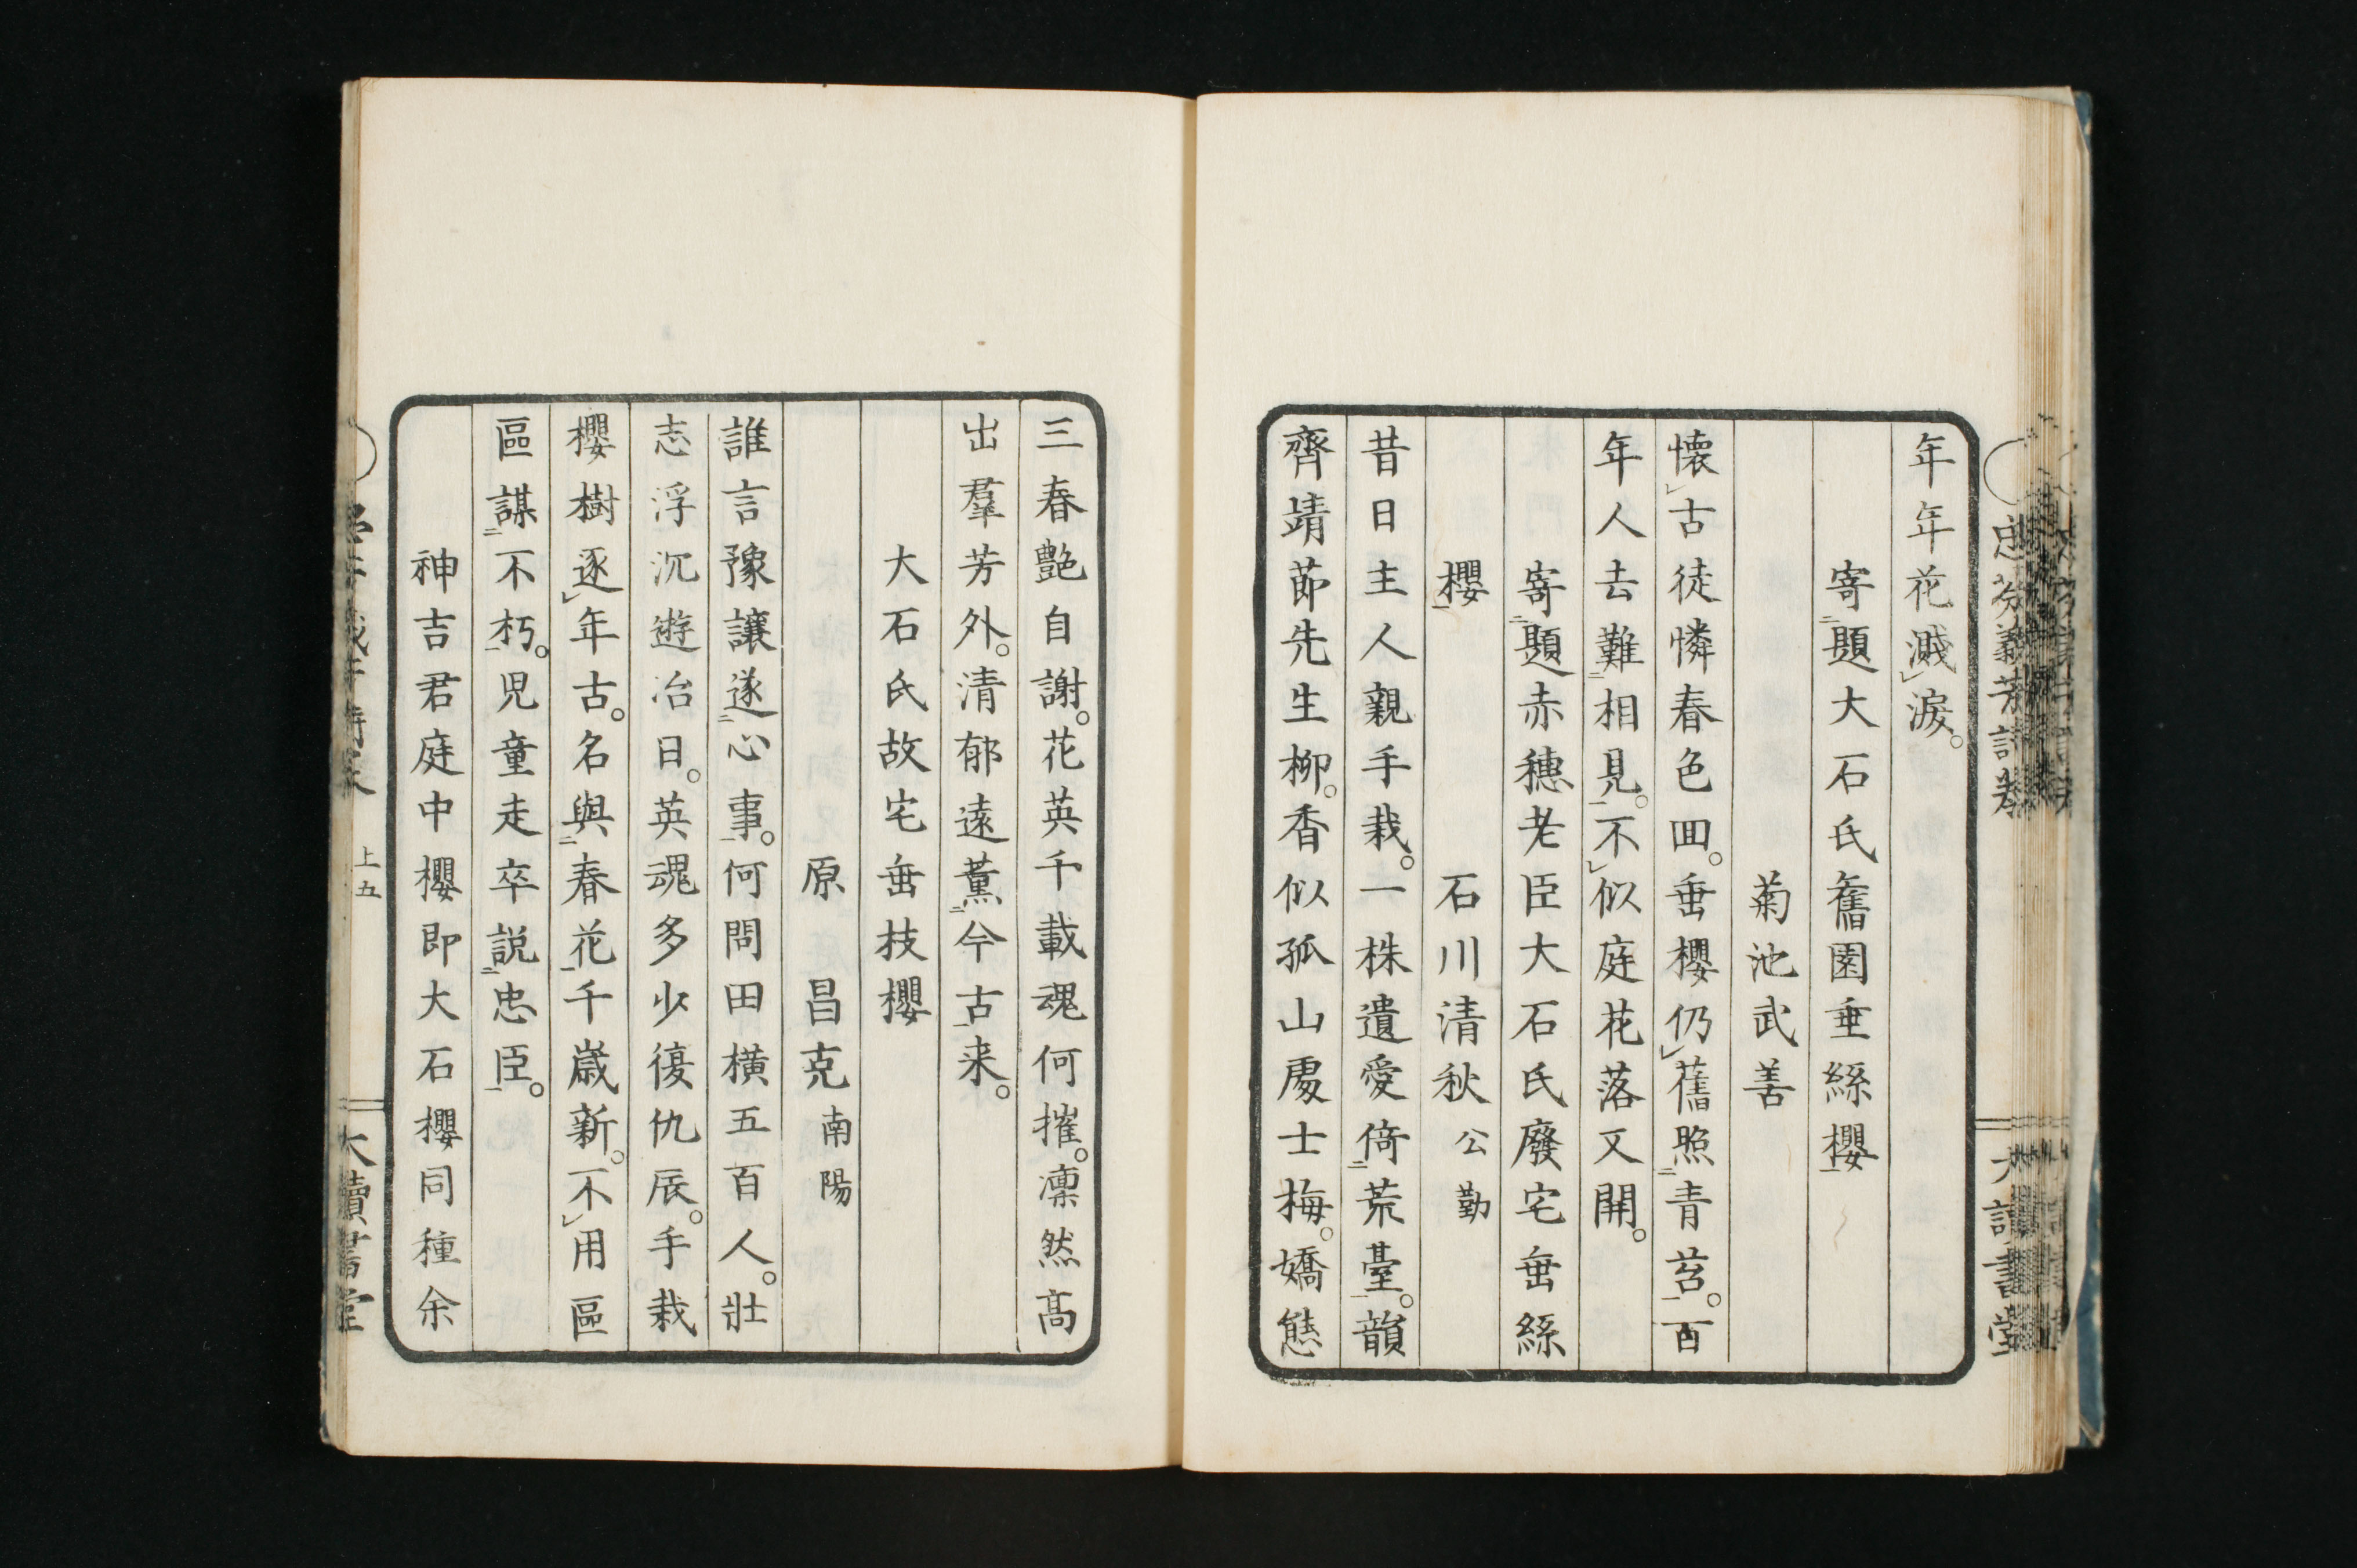 年年花濺淚。
寄題大石氏舊園垂絲櫻
菊池武善
懐古徒憐春色回。垂櫻仍舊照青苔。百
年人去難相見。不似庭花落又開。
寄題赤穗老臣大石氏廢宅垂絲
櫻
石川清秋公勤
昔日主人親手栽。一株遺愛倚荒臺。韻
齊靖節先生柳。香似孤山處士梅。嬌態
三春艶自謝。花英千載魂何摧。凛然高
出羣芳外。清郁遠薫今古来。
大石氏故宅垂枝櫻
原昌克南陽
誰言豫讓遂心事。何問田横五百人。壯
志浮沉遊冶日。英魂多少復仇辰。手栽
櫻樹逐年古。名與春花千歳新。不用區
區謀不朽。児童走卒説忠臣。
神吉君庭中櫻即大石櫻同種余
上五